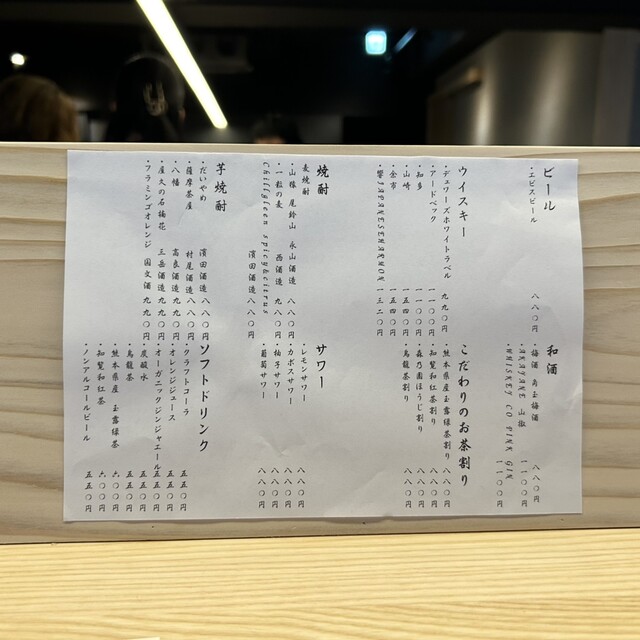 ビール
・エビスビール 八八〇円
ウイスキー
・デュワーズホワイトラベル 九九〇円
・アードベック 一一〇〇円
・知多 一一〇〇円
・山崎 一五四〇円
・余市 一五四〇円
・響JAPANESEHARMONY 一三二〇円
焼酎
麦焼酎
・山猿 尾鈴山 永山酒造 八八〇円
・一粒の麦 西酒造 九九〇円
Chillgleen spicy&citrus 濵田酒造 八八〇円
芋焼酎
・だいやめ 濵田酒造 八八〇円
・薩摩茶屋 村尾酒造 八八〇円
・八幡 高良酒造 九九〇円
・屋久の石楠花 三岳酒造 九九〇円
・フラミンゴオレンジ 国分酒 九九〇円
和酒
・梅酒 鳥玉梅酒 八八〇円
・AKAYANE 山椒 一一〇〇円
・WHISKEY CO PINK GIN 一一〇〇円
こだわりのお茶割り
・熊本県産玉露緑茶割り 八八〇円
・知覧和紅茶割り 八八〇円
・森乃園ほうじ割り 八八〇円
・烏龍茶割り 八八〇円
サワー
・レモンサワー 八八〇円
・カボスサワー 八八〇円
・柚子サワー 八八〇円
・葡萄サワー 八八〇円
ソフトドリンク
・クラフトコーラ 五五〇円
・オレンジジュース 五五〇円
・オーガニックジンジャエール 五五〇円
・炭酸水 五五〇円
・烏龍茶 五五〇円
・熊本県産 玉露緑茶 六〇〇円
・知覧和紅茶 六〇〇円
・ノンアルコールビール 五五〇円